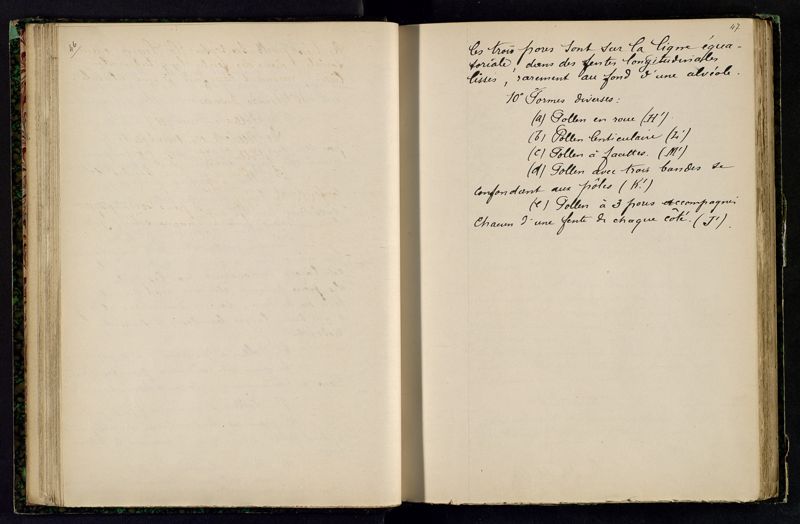 46
47
les trois pores sont sur la ligne équa-
toriale, dans des fentes longitudinales
lisses, rarement au fond d'une alvéole.
10° Formes diverses:
(a) Pollen en roue (H')
(b) Pollen lenticulaire (L')
(c) Pollen à facettes. (M')
(d) Pollen avec trois bandes se
confondant aux pôles (K')
(e) Pollen à 3 pores accompagnés
chacun d'une fente de chaque côté. (J').